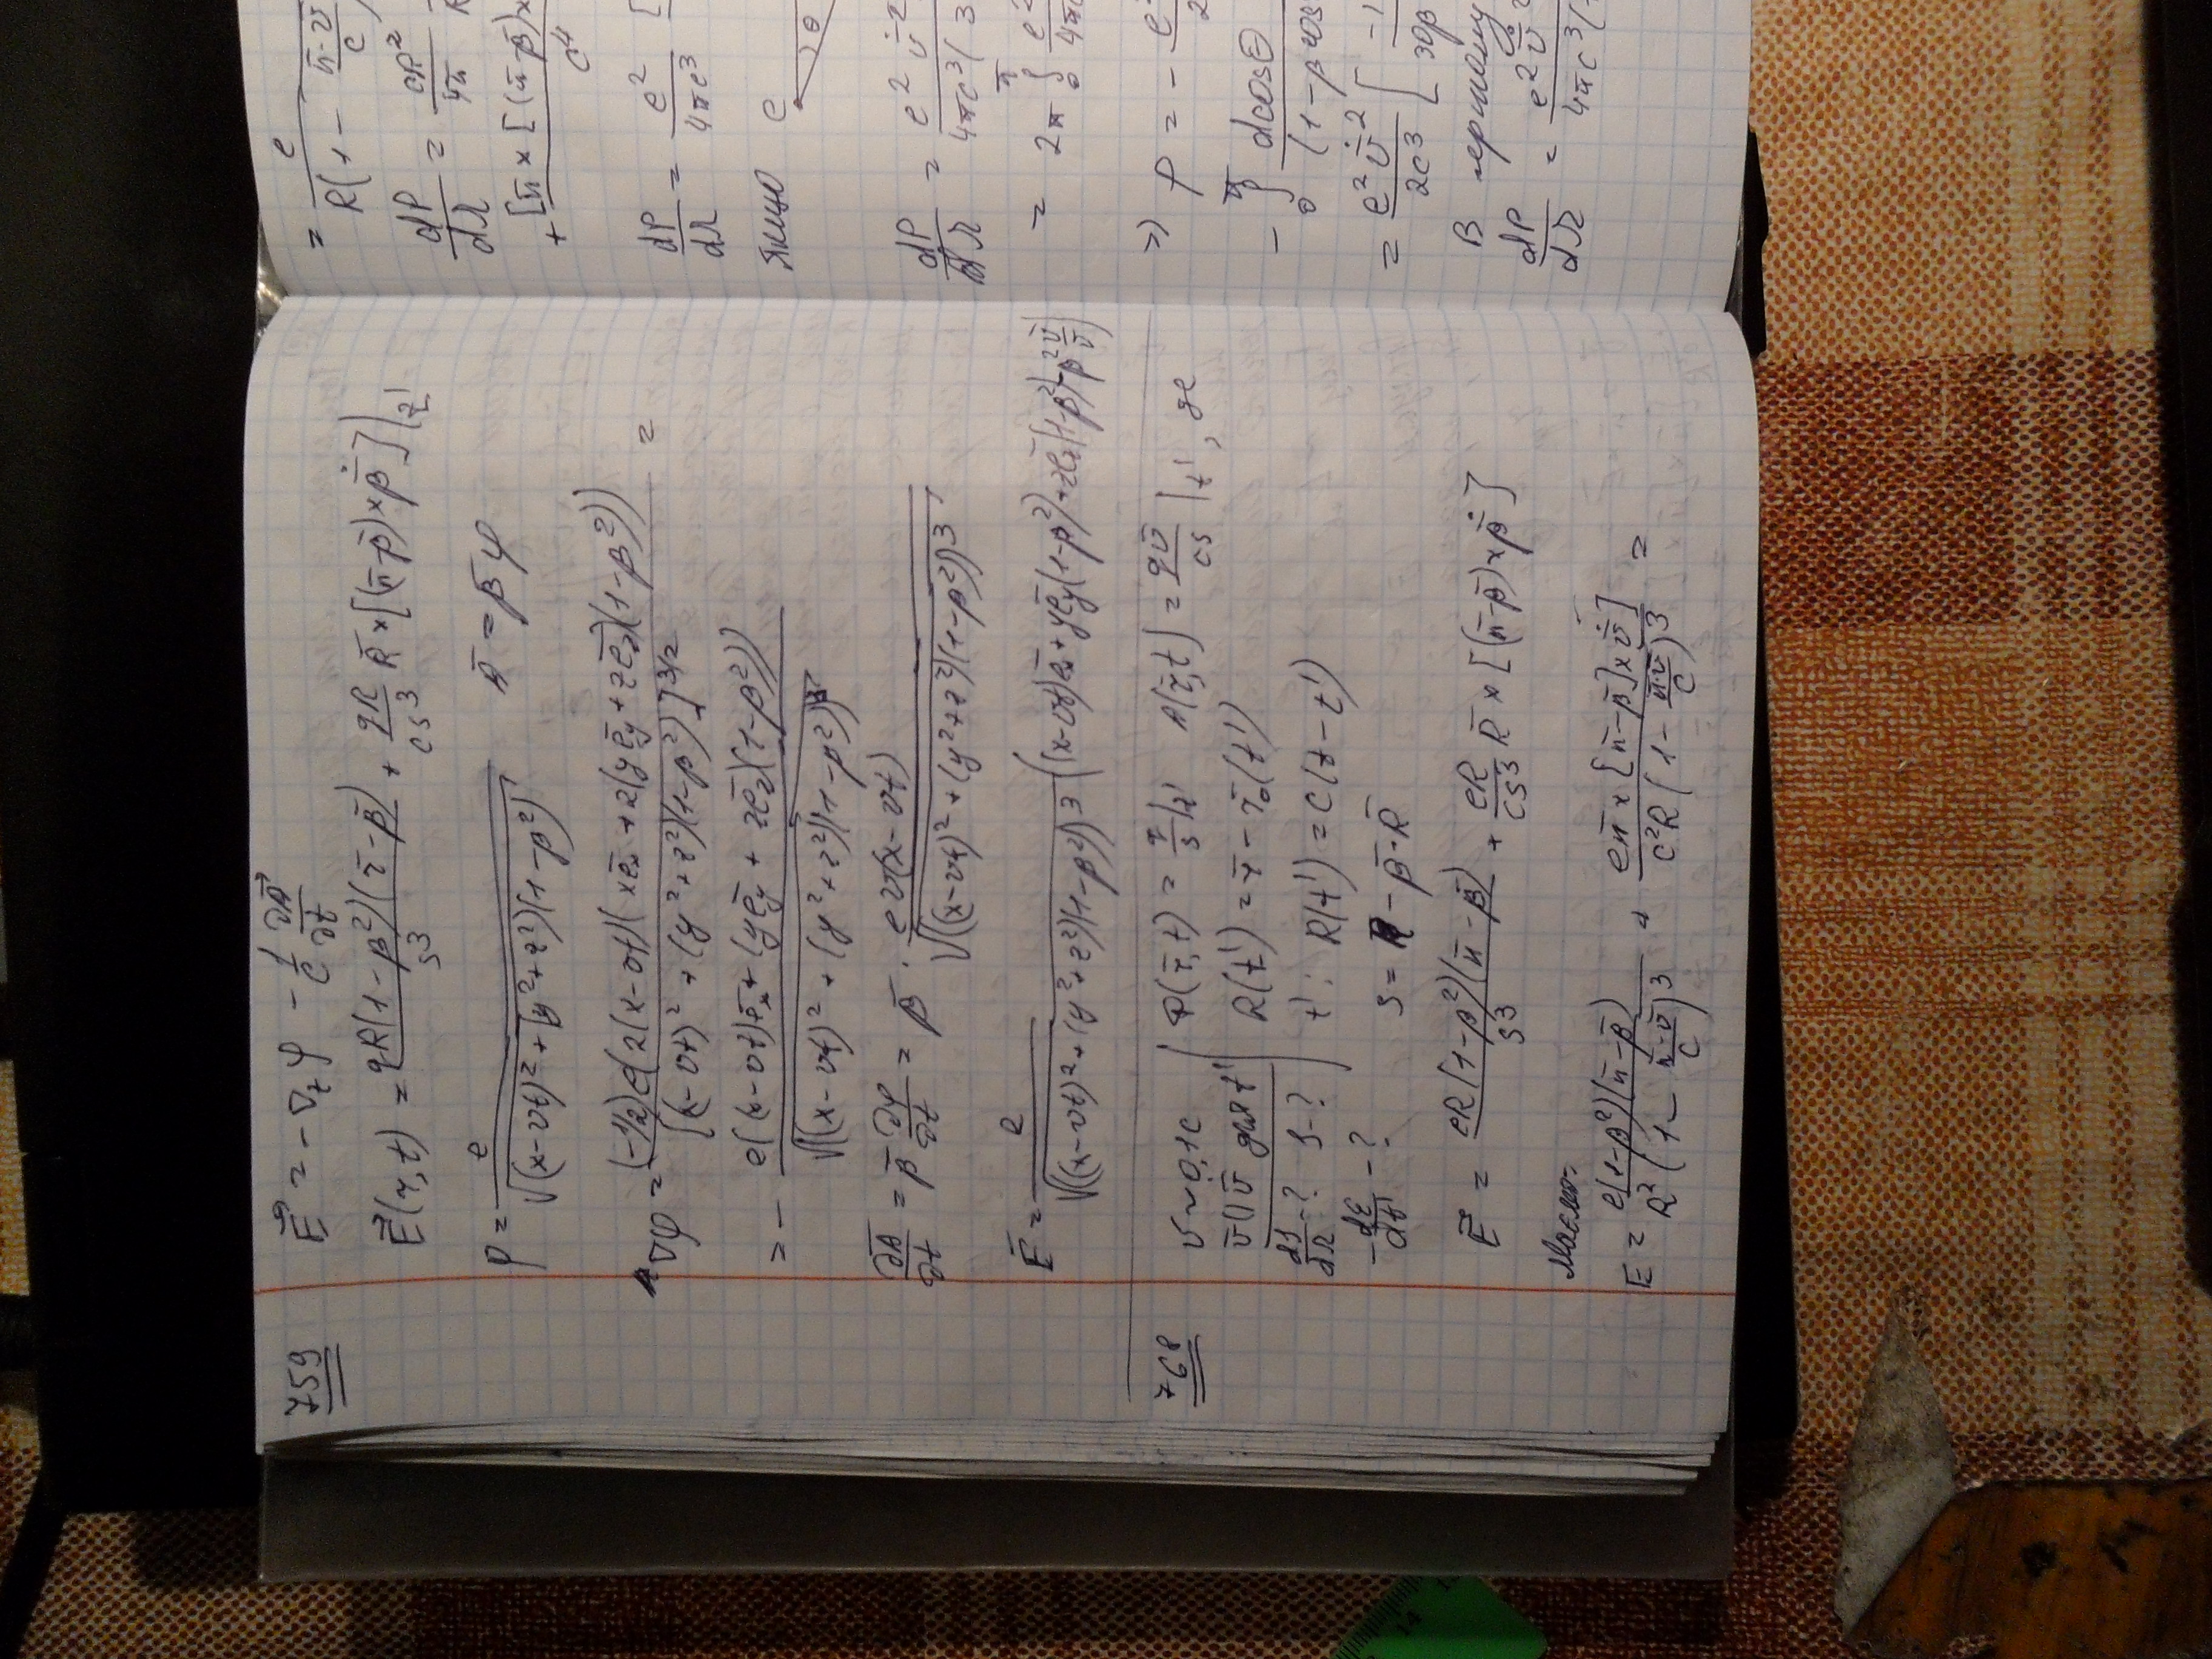 759
E⃗ = − ∇_r φ − 1/c ∂A⃗/∂t
E⃗(r, t) = qR(1−β²)(r̄−β̄)/s³ + qR/cs³ R̄×[(n̄−β̄)×β̄̇]|_t'
φ = e/√((x−vt)²+(y²+z²)(1−β²)) Ā = β̄φ
∇φ = (−1/2)e(2(x−vt)(xē_x + 2(yē_y + zē_z)(1−β²))/[(x−vt)²+(y²+z²)(1−β²)]^3/2 =
= − e((x−vt)ē_x + (yē_y + zē_z)(1−β²))/√((x−vt)²+(y²+z²)(1−β²))³
∂Ā/∂t = β̄ ∂φ/∂t = β̄ · ev(x−vt)/√((x−vt)²+(y²+z²)(1−β²))³
Ē = e/√((x−vt)²+(y²+z²)(1−β²))³ ((x−vt)ē_x + yē_y(1−β²)+zē_z(1−β²)−β² v̄/v)
768
v ~ 0,1c φ(r̄, t) = q/s|_t' A(r̄, t) = qv̄/cs |_t', де
v̄ || v̄̇ для t' R(t') = r̄ − r̄₀(t')
dJ/dΩ −? J−? t': R(t') = c(t − t')
−dε/dt' −? s = R − β̄·R̄
E⃗ = eR(1−β²)(n̄−β̄)/s³ + eR/cs³ R̄×[(n̄−β̄)×β̄̇]
Маємо:
E = e(1−β²)(n̄−β̄)/R²(1− n̄·v̄/c)³ + en̄×{[n̄−β̄]×v̄̇}/c²R(1− n̄·v̄/c)³ =
= e/R(1− n̄·v̄/c
dP/dΩ = cR²/4π
+ [n̄×[(n̄−β̄)×
c⁴
dP/dΩ = e²/4πc³ [
Якщо e θ
dP/dΩ = e²v̇²/4πc³(3
= 2π ∫₀^π e²/4πc
=> P = −
− ∫₀^π dcosΘ/(1−βcos
= e²v̇²/2c³ [ −1/3β
В першому
dP/dΩ = e²v̇²/4πc³(